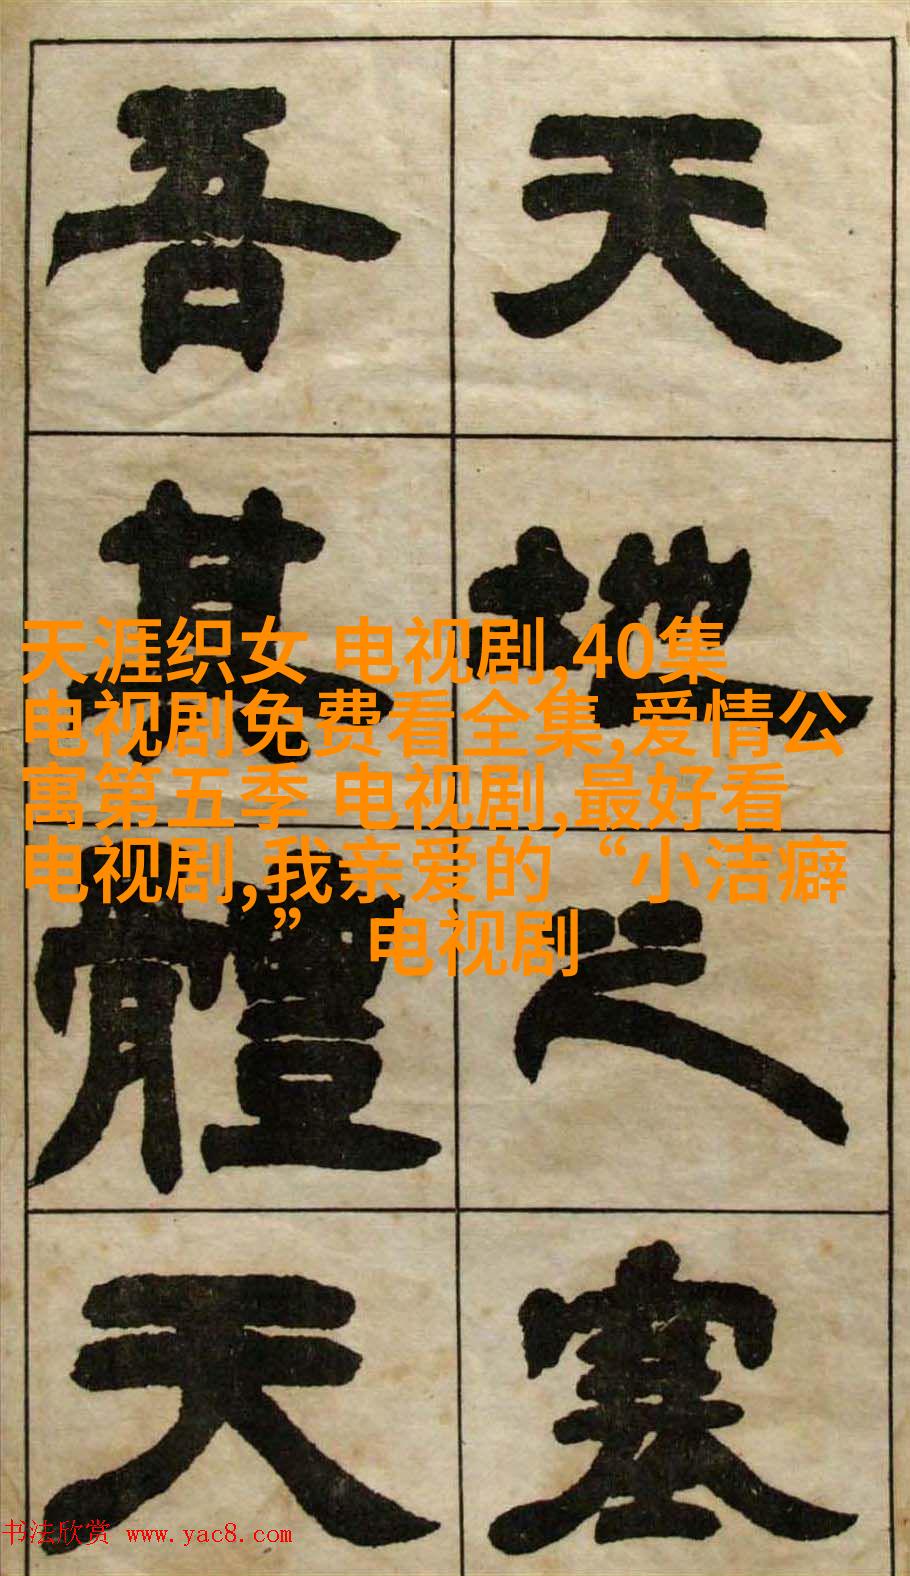 天地之塞
吾其體天
天涯织女 电视剧,40集
电视剧免费看全集,爱情公
寓第五季 电视剧,最好看
电视剧,我亲爱的“小洁癖
” 电视剧
书法欣赏 www.yac8.com